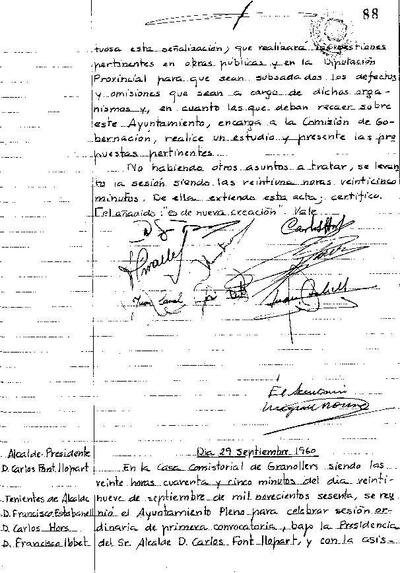 88
tuosa esta señalización, que realizara las gestiones
pertinentes en obras publicas y en la Diputación
Provincial para que sean subsadados los defectos
y omisiones que sean a cargo de dichos orga-
nismos y, en cuanto las que deban recaer sobre
este Ayuntamiento, encarga a la Comisión de Go-
bernación, realice un estudio y presente las pro
puestas pertinentes.
No habiendo otros asuntos a tratar, se levan
to la sesión siendo las veintiuna horas veinticinco
minutos. De ella extiendo esta acta; certifico.
El añadido: "es de nueva creación" Vale
El Secretario
Dia 29 septiembre 1960
Alcalde-Presidente
D. Carlos Font Llopart
Tenientes de Alcalde
D. Francisco Estabanell
D. Carlos Hors
D. Francisco Llobet
En la Casa Comistorial de Granollers siendo las
veinte horas cuarenta y cinco minutos del dia reinti-
nueve de septiembre de mil novecientos sesenta, se reu
nió el Ayuntamiento Pleno para celebrar sesión or-
dinaria de primera convocatoria, bajo la Presidencia
del Sr. Alcalde D. Carlos Font Llopart, y con la asis-